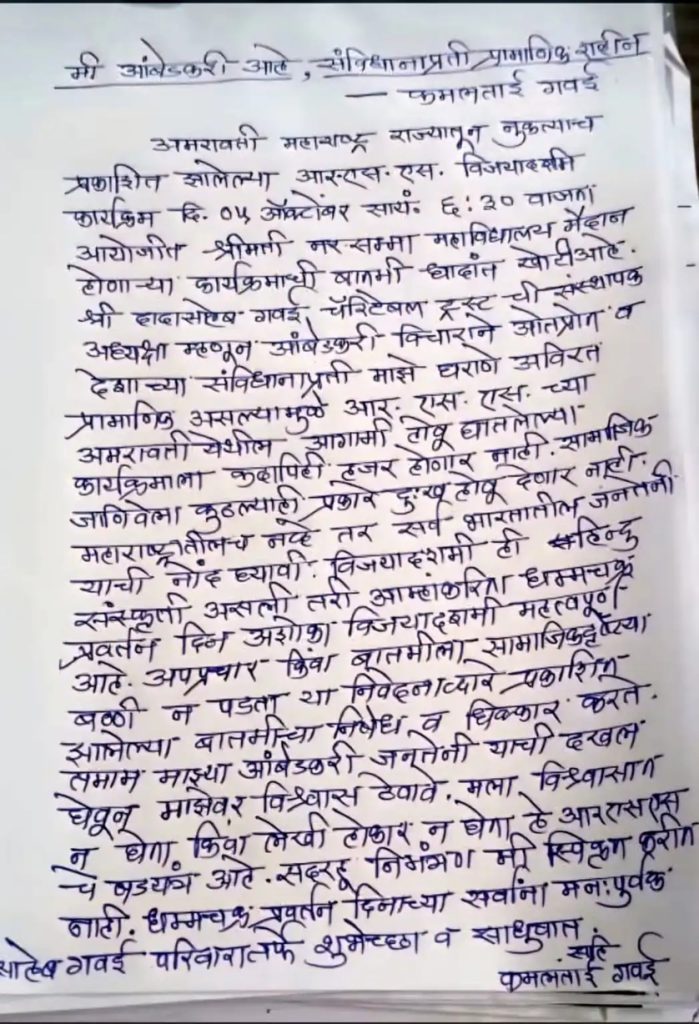 मी आंबेडकरी आहे, संविधानाप्रती प्रामाणिक राहीन
— कमलताई गवई
अमरावती महाराष्ट्र राज्यातून नुकत्याच
प्रकाशित झालेल्या आर.एस.एस. विजयादशमी
कार्यक्रम दि. ०५ ऑक्टोंबर सायं. ६:३० वाजता
आयोजीत श्रीमती नरसम्मा महाविद्यालय मैदान
होणाऱ्या कार्यक्रमाची बातमी धादांत खोटीआहे.
श्री दादासाहेब गवई चॅरिटेबल ट्रस्ट ची संस्थापक
अध्यक्षा म्हणून आंबेडकरी विचाराने ओतप्रोत व
देशाच्या संविधानाप्रती माझे घराणे अविरत
प्रामाणिक असल्यामुळे आर. एस. एस. च्या
अमरावती येथील आगामी होवू घातलेल्या
कार्यक्रमाला कदापिही हजर होणार नाही. सामाजिक
जाणिवेला कुठल्याही प्रकारे दुःख होवू देणार नाही.
महाराष्ट्रातीलच नव्हे तर सर्व भारतातील जनतेनी
याची नोंद घ्यावी. विजयादशमी ही हिन्दु
संस्कृती असली तरी आम्हांकरिता धम्मचक्र
प्रवर्तन दिन अशोका विजयादशमी महत्वपूर्ण
आहे. अपप्रचार किंवा बातमीला सामाजिकदृष्ट्या
बळी न पडता या निवेदनाव्दारे प्रकाशित
झालेल्या बातमीचा निषेध व धिक्कार करते.
तमाम माझ्या आंबेडकरी जनतेनी याची दखल
घेवून माझेवर विश्वास ठेवावे. मला विश्वासात
न घेता किंवा लेखी होकार न घेता हे आरएसएस
चे षडयंत्र आहे. सदरहू निमंत्रण मी स्विकृत करीत
नाही. धम्मचक्र प्रवर्तन दिनाच्या सर्वांना मनःपूर्वक
साहेब गवई परिवारातर्फे शुभेच्छा व साधुवात.
सही
कमलताई गवई